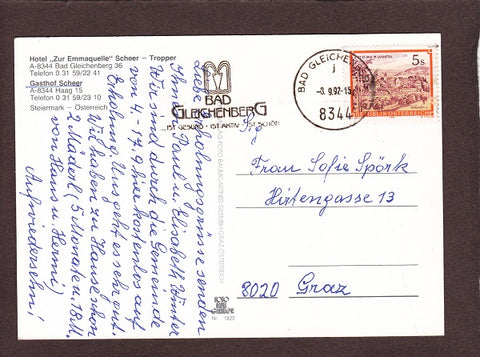 Hotel „Zur Emmaquelle" Scheer – Tropper
A-8344 Bad Gleichenberg 36
Telefon 0 31 59/22 41
Gasthof Scheer
A-8344 Haag 15
Telefon 0 31 59/23 10
Steiermark – Österreich
BAD
GLEICHENBERG
...IST GESUND · IST AKTIV · IST SCHÖN
BAD GLEICHENBERG
-8.9.92-15
8344
5s
REPUBLIK ÖSTERREICH
Liebe Erholungsgrüsse senden
Ihnen Paul u. Elisabeth Winter
Wir sind durch die Gemeinde
von 4.-17.9. hier kostenlos auf
Erholung. Uns geht es sehr gut.
Wir haben zu Hause schon
2 Mäderl (5 Monate u. 18 M.
von Hans u. Hermi)
Aufwiedersehn!
Frau Sofie Spörk
Hirtengasse 13
8020 Graz
Nr. 1323